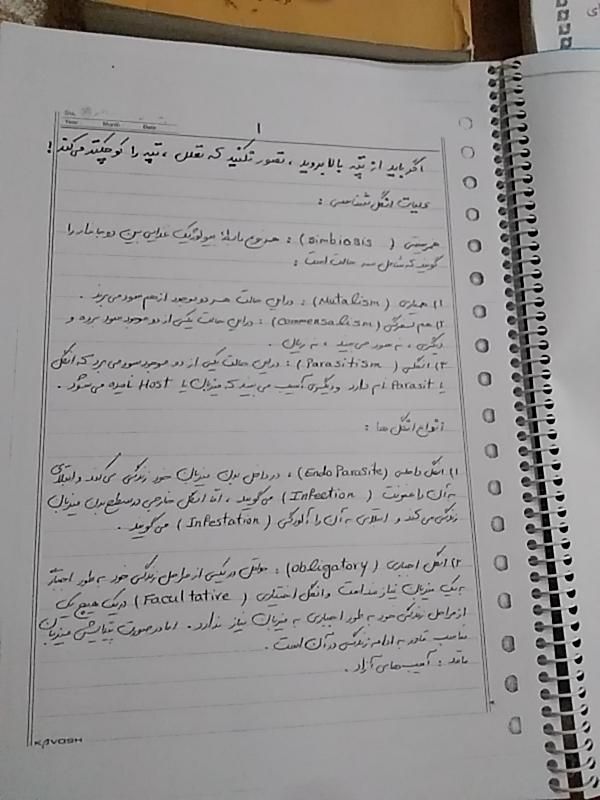 Year: Month: Date:
۱
اگر باید از تپه بالا بروید ، تصور نکنید که تعلل ، تپه را کوچکتر می‌کند !
کلیات انگل شناسی :
همزیستی ( simbiosis ) : هر نوع رابطهٔ بیولوژیک غذایی بین دو جاندار را
گویند که شامل سه حالت است :
۱) همیاری ( Mutalism ) : در این حالت هر دو موجود از هم سود می‌برند .
۲) هم سفرگی ( Commensalism ) : در این حالت یکی از دو موجود سود برده و
دیگری ، نه سود می‌بیند ، نه زیان .
۳) انگلی ( Parasitism ) : در این حالت یکی از دو موجود سود می‌برد که انگل
یا Parasit نام دارد و دیگری آسیب می‌بیند که میزبان یا Host نامیده می‌شود .
انواع انگل ها :
۱) انگل داخلی ( Endo Parasite ) ، در داخل بدن میزبان خود زندگی می‌کند و ابتلای
به آن را عفونت ( Infection ) می‌گویند ، اما انگل خارجی در سطح بدن میزبان
زندگی می‌کند و ابتلای به آن را آلودگی ( Infestation ) می‌گویند .
۲) انگل اجباری ( obligatory ) : حداقل در یکی از مراحل زندگی خود به طور اجباری
به یک میزبان نیازمند است و انگل اختیاری ( Facultative ) در هیچ یک
از مراحل زندگی خود به طور اجباری به میزبان نیاز ندارد . اما در صورت میزبان
مناسب قادر به ادامه زندگی در آن است .
مانند : آمیب‌های آزاد .
KAVOSH